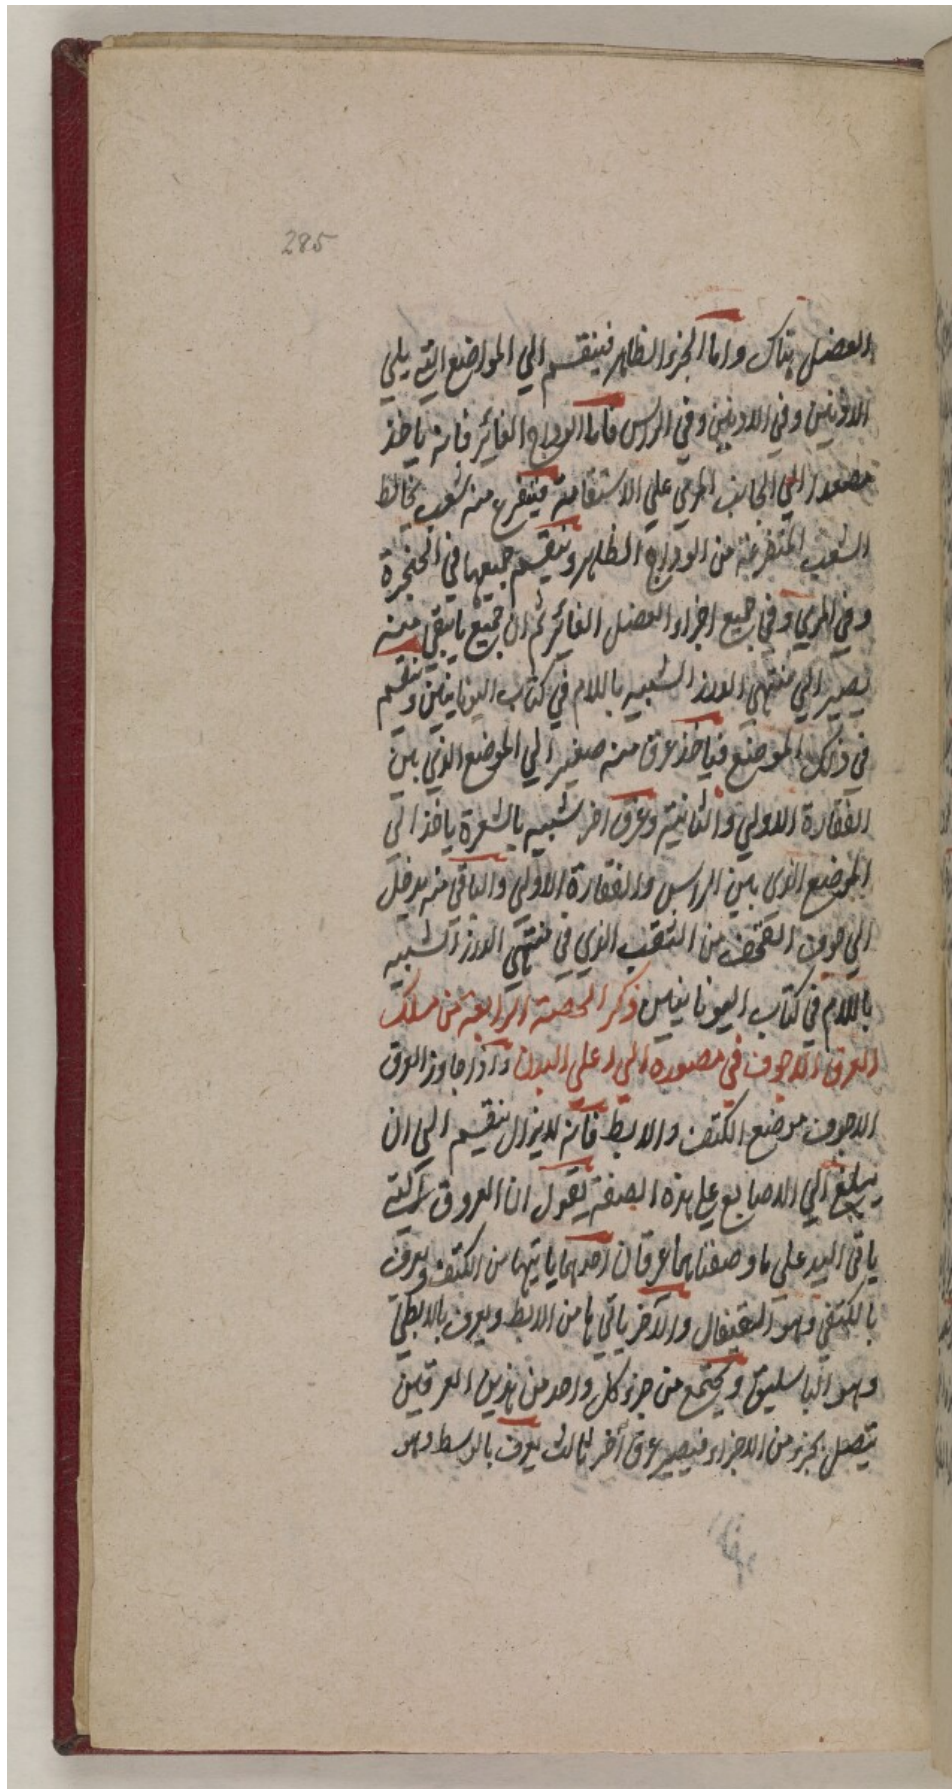 285
العضل هناك واما الجزء الظاهر فينقسم الي المواضع التي يلي
الاذنين وفي الاذنين وفي الراس فاما الوداج الغائر فانه ياخذ
مصعدا الي الجانب المري علي الاستقامة فيتفرع منه شعب يخالط
الشعب المتفرعة من الوداج الظاهر وينقسم جميعها في الحنجرة
وفي المري وفي جميع اجزاء العضل الغائر ثم ان جميع ما يبقي منه
يصير الي منتهي الدرز الشبيه باللام في كتاب اليونانيين وينقسم
في ذلك الموضع فياخذ عرق منه صغير الي الموضع الذي بين
الفقارة الاولي والثانية وعرق اخر شبيه بالشعرة ياخذ الي
الموضع الذي بين الراس والفقارة الاولي والباقي منه يدخل
الي جوف القحف من الثقب الذي في منتهي الدرز الشبيه
باللام في كتاب اليونانيين ذكر الحصة الرابعة من مسلك
العرق الاجوف في مصوره الي اعلي البدن واذا جاوز العرق
الاجوف موضع الكتف والابط فانه لا يزال ينقسم الي ان
يبلغ الي الاصابع علي هذه الصفة يقول ان العروق التي
ياتي اليد علي ما وصفناهما عرقان احدهما ياتيها من الكتف ويعرف
بالكتفي وهو القيفال والاخر ياتي ها من الابط ويعرف بالابطي
وهو الباسليق ويجتمع من جزء كل واحد من هذين العرقين
يتصل بجزء من الاجزاء فيصير عرق اخر ثالث يعرف بالوسط وهو